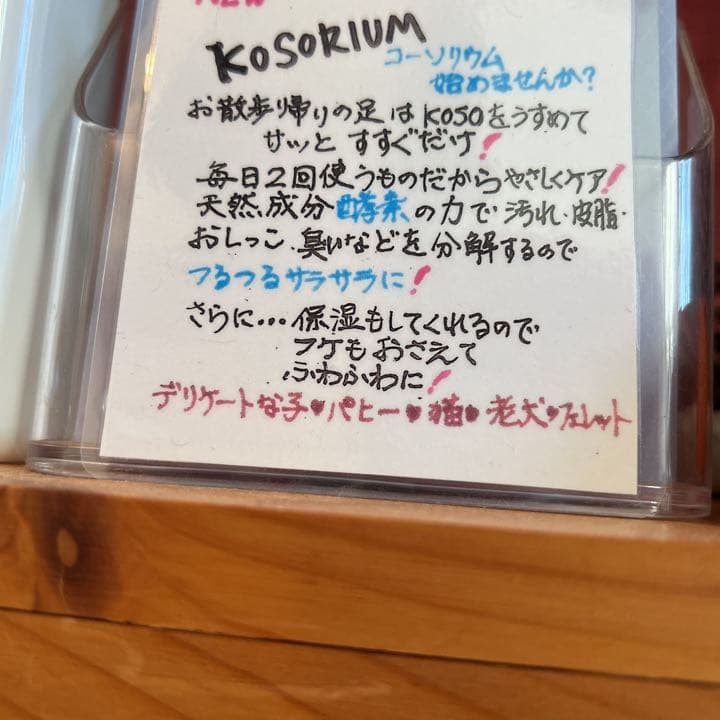 NEW
KOSORIUM
コーソリウム
始めませんか?
お散歩帰りの足はKOSOをうすめて
サッとすすぐだけ!
毎日2回使うものだからやさしくケア!
天然成分酵素の力で汚れ・皮脂・
おしっこ、臭いなどを分解するので
つるつるサラサラに!
さらに…保湿もしてくれるので
フケもおさえて
ふわふわに!
デリケートな子♥パピー♥猫♥老犬♥フェレット